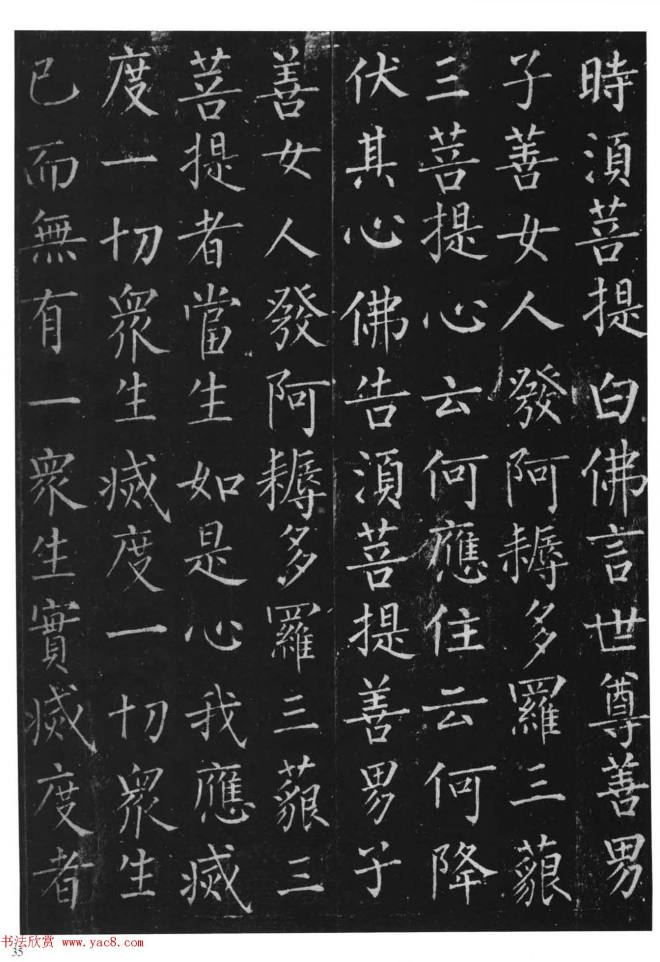 時湏菩提白佛言世尊善男
子善女人發阿耨多羅三藐
三菩提心云何應住云何降
伏其心佛告湏菩提善男子
善女人發阿耨多羅三藐三
菩提者當生如是心我應滅
度一切眾生滅度一切眾生
已而無有一眾生實滅度者
书法欣赏 www.yac8.com
35